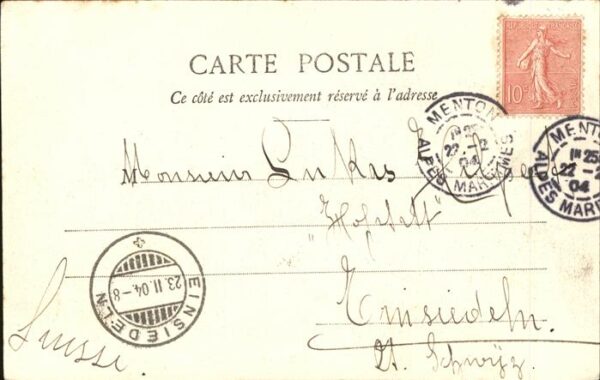 CARTE POSTALE
Ce côté est exclusivement réservé à l'adresse
MENTON
22 - 2
04
ALPES MARITIMES
10
MENTON
1E 25
22 - 2
04
ALPES MAR
Monsieur Lukas
"Hofstatt"
Einsiedeln
Kt. Schwyz.
Suisse.
EINSIEDELN
23.II.04.-8